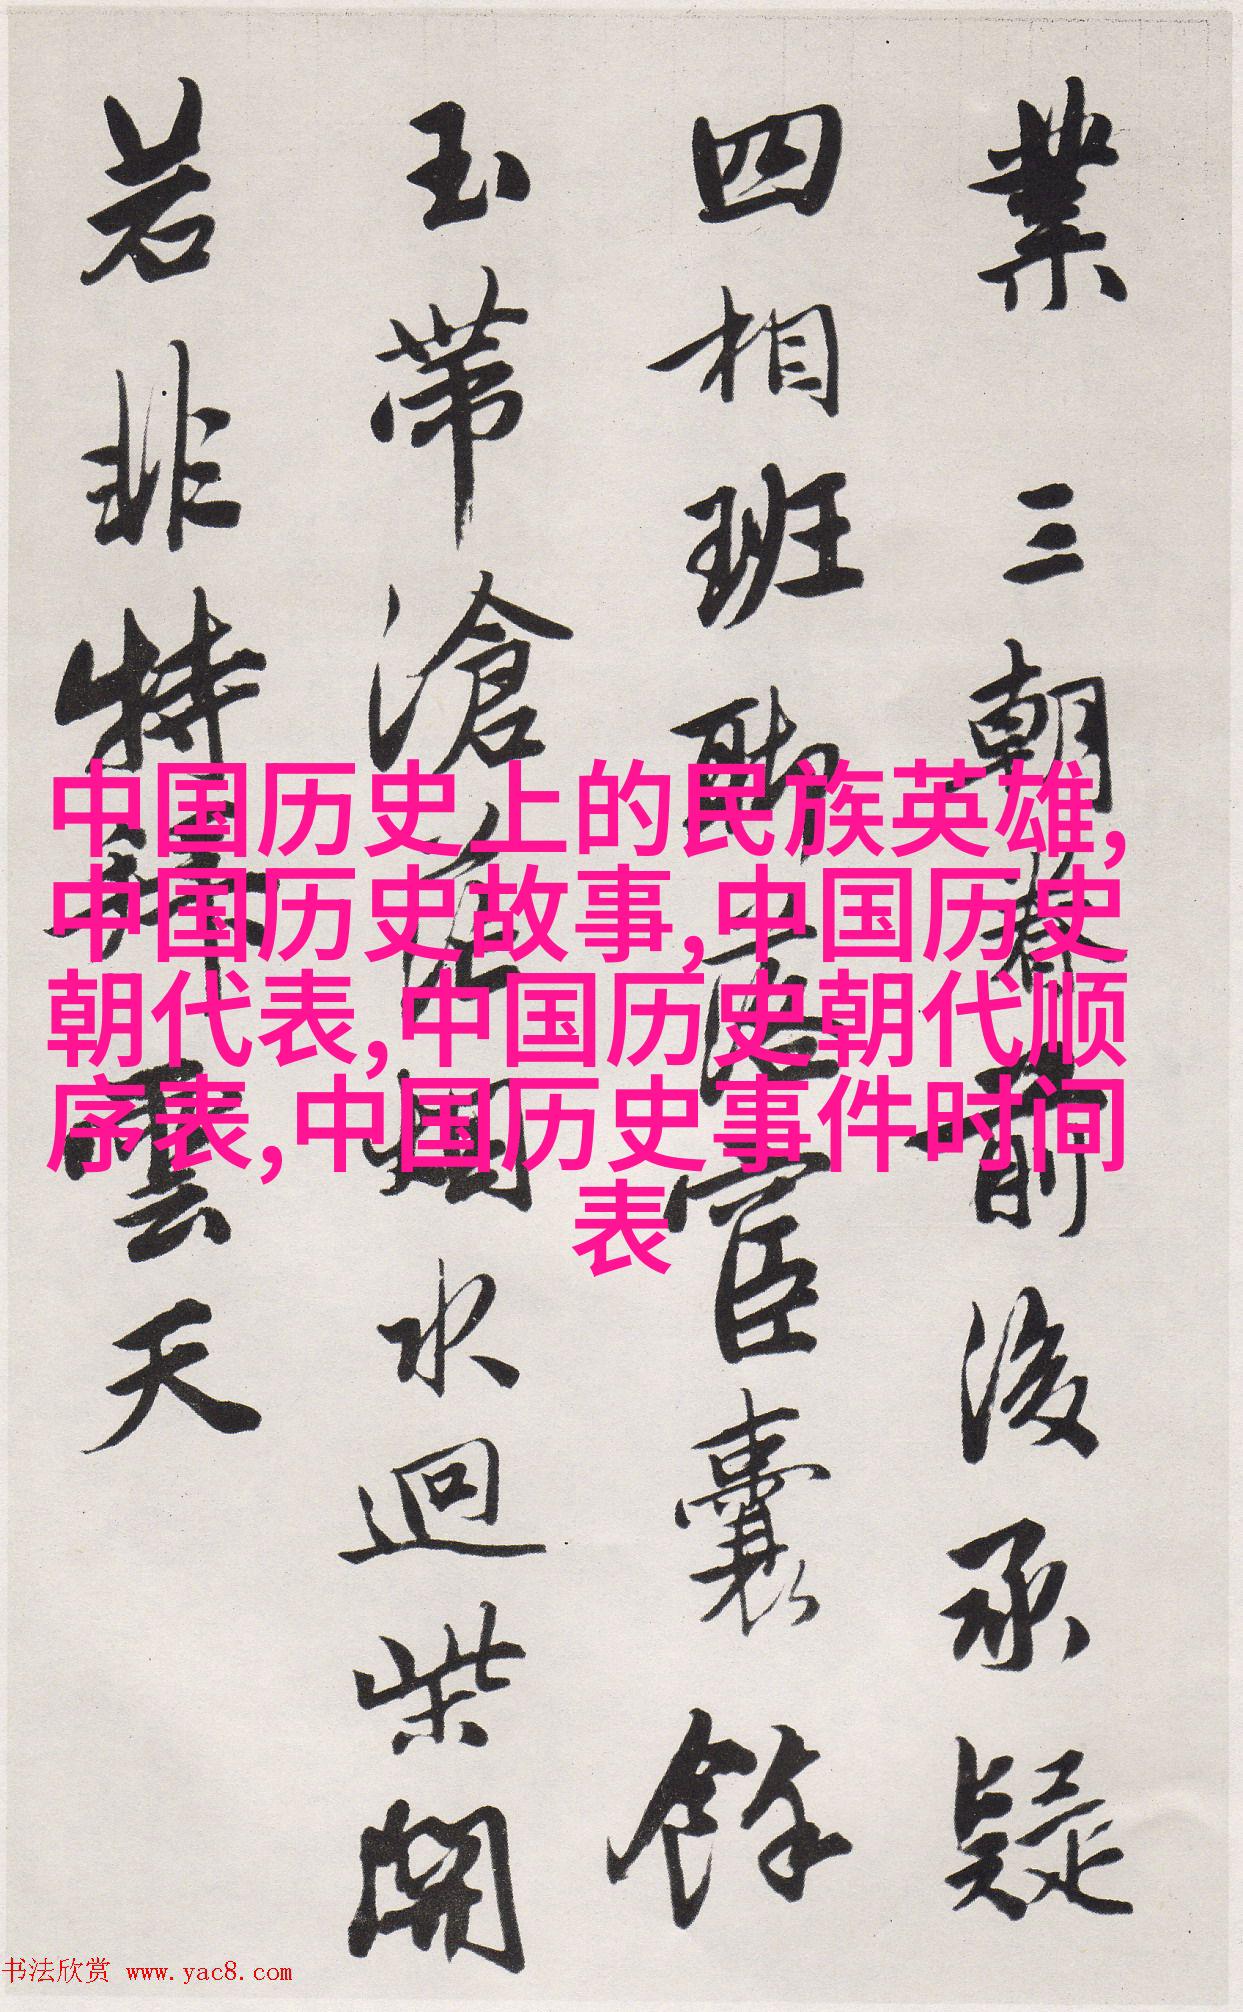 業 三朝前後承疑
四相班聯宦囊餘
玉帶滄烟水迥柴開
若非特雲天
中国历史上的民族英雄,
中国历史故事,中国历史
朝代表,中国历史朝代顺
序表,中国历史事件时间
表
书法欣赏 www.yac8.com